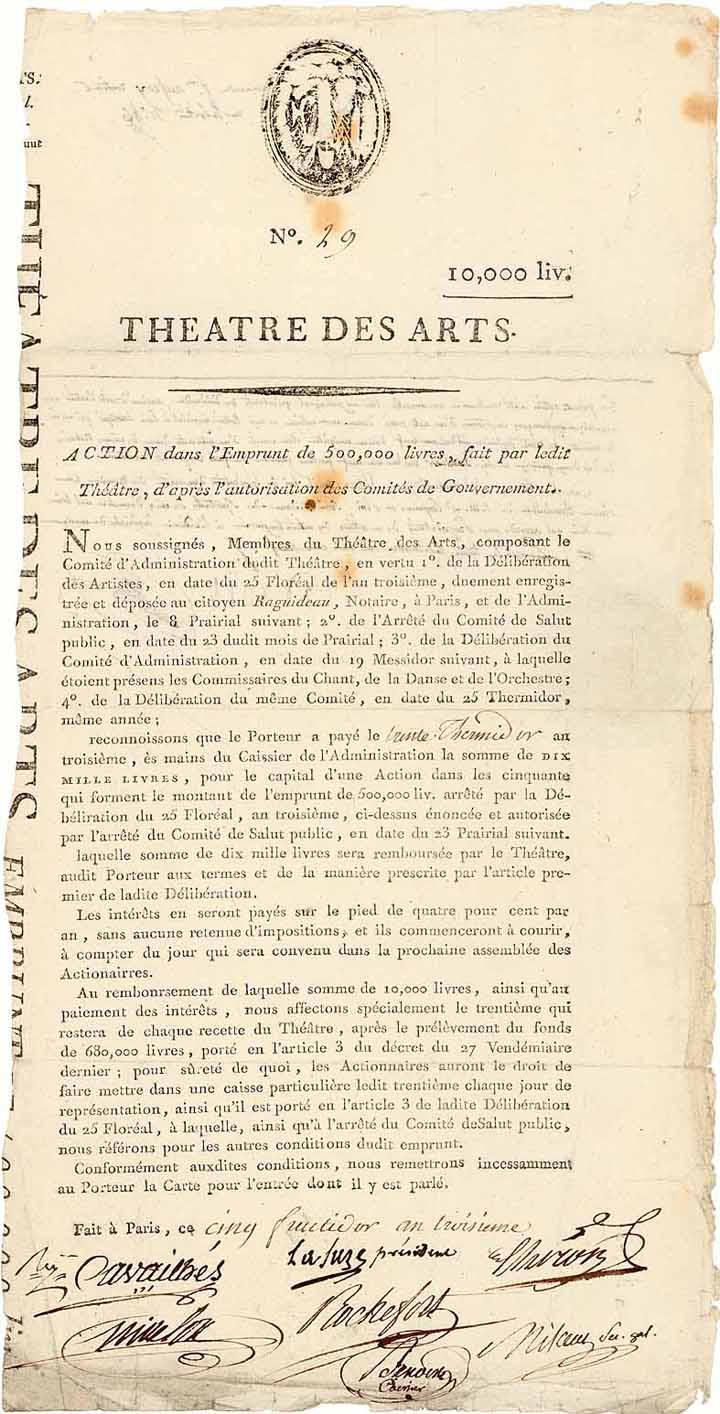 N°. 29
10,000 liv.
THEATRE DES ARTS.
ACTION dans l'Emprunt de 500,000 livres, fait par ledit
Théâtre, d'après l'autorisation des Comités de Gouvernement.
Nous soussignés, Membres du Théâtre des Arts, composant le
Comité d'Administration dudit Théâtre, en vertu 1°. de la Délibération
des Artistes, en date du 25 Floréal de l'an troisième, duement enregis-
trée et déposée au citoyen Raguideau, Notaire, à Paris, et de l'Admi-
nistration, le 8 Prairial suivant; 2°. de l'Arrêté du Comité de Salut
public, en date du 23 dudit mois de Prairial; 3°. de la Délibération du
Comité d'Administration, en date du 19 Messidor suivant, à laquelle
étoient présens les Commissaires du Chant, de la Danse et de l'Orchestre;
4°. de la Délibération du même Comité, en date du 25 Thermidor,
même année;
reconnoissons que le Porteur a payé le trente Thermidor an
troisième, ès mains du Caissier de l'Administration la somme de DIX
MILLE LIVRES, pour le capital d'une Action dans les cinquante
qui forment le montant de l'emprunt de 500,000 liv. arrêté par la Dé-
béliration du 25 Floréal, an troisième, ci-dessus énoncée et autorisée
par l'arrêté du Comité de Salut public, en date du 23 Prairial suivant.
laquelle somme de dix mille livres sera remboursée par le Théâtre,
audit Porteur aux termes et de la manière prescrite par l'article pre-
mier de ladite Délibération.
Les intérêts en seront payés sur le pied de quatre pour cent par
an, sans aucune retenue d'impositions, et ils commenceront à courir,
à compter du jour qui sera convenu dans la prochaine assemblée des
Actionairres.
Au rembonrsement de laquelle somme de 10,000 livres, ainsi qu'au
paiement des intérêts, nous affectons spécialement le trentième qui
restera de chaque recette du Théâtre, après le prélèvement du fonds
de 680,000 livres, porté en l'article 3 du décret du 27 Vendémiaire
dernier; pour sûreté de quoi, les Actionnaires auront le droit de
faire mettre dans une caisse particulière ledit trentième chaque jour de
représentation, ainsi qu'il est porté en l'article 3 de ladite Délibération
du 25 Floréal, à laquelle, ainsi qu'à l'arrêté du Comité deSalut public,
nous référons pour les autres conditions dudit emprunt.
Conformément auxdites conditions, nous remettrons incessamment
au Porteur la Carte pour l'entrée dont il y est parlé.
Fait à Paris, ce cinq fructidor an troisieme
Cavailhés
LaSuze président
Chéron
Rochefort
THÉATRE DES ARTS EMPRUNT